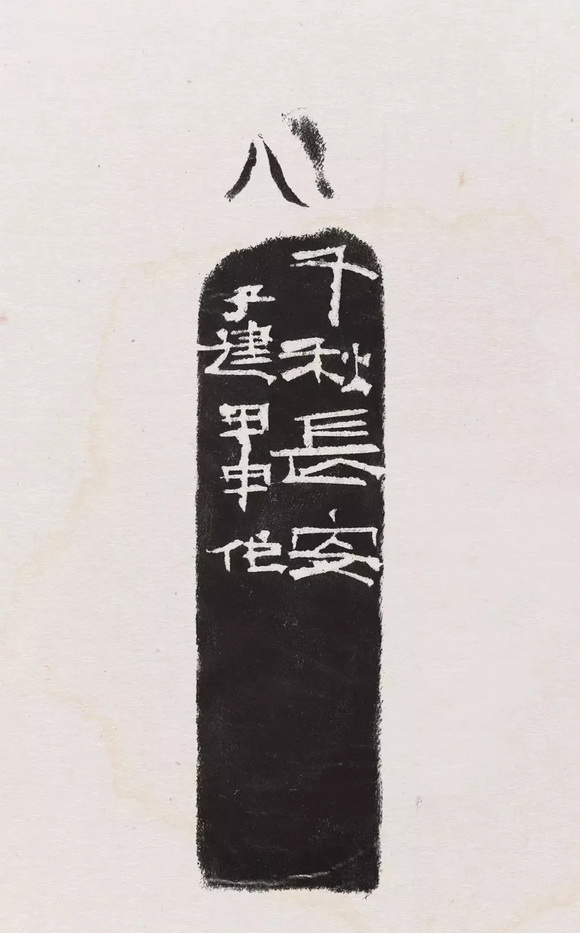 千秋長安
子建甲申作